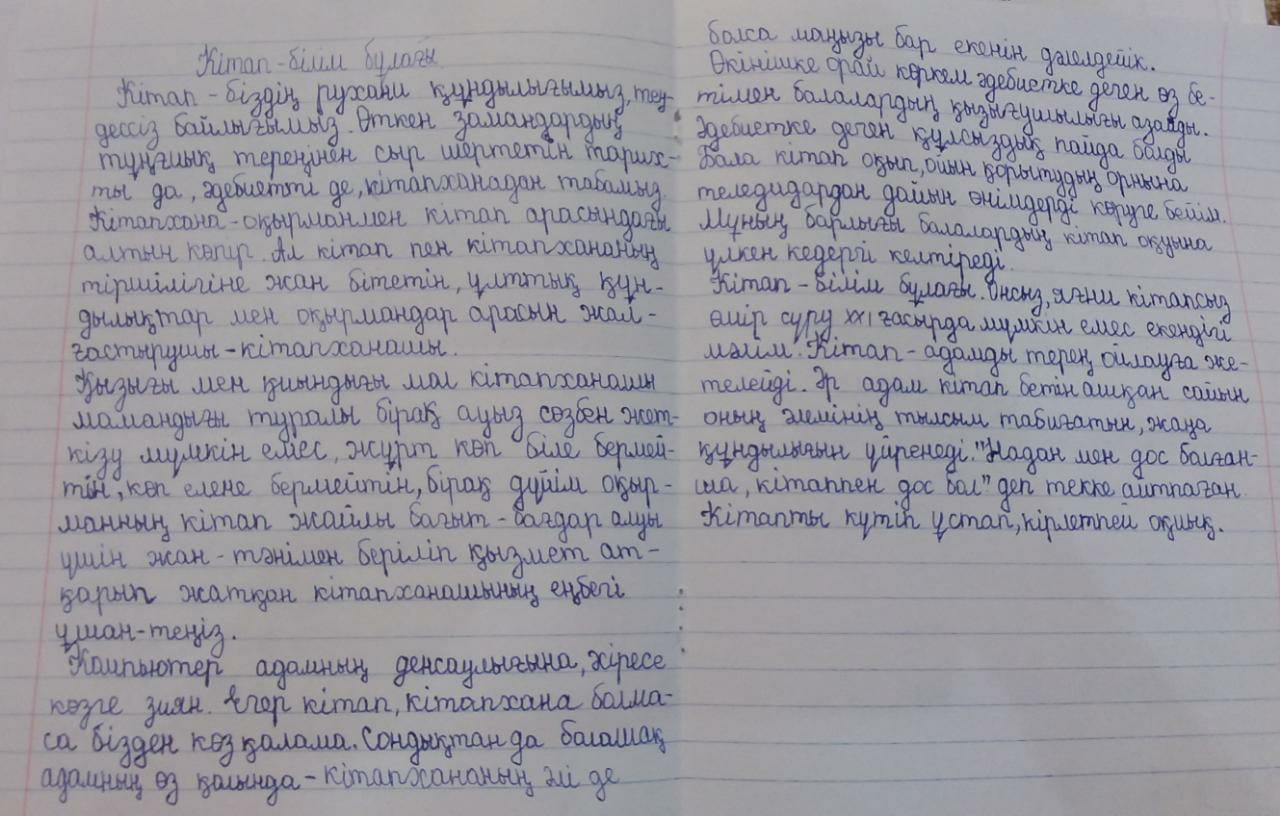 Кітап-білім бұлағы
Кітап - біздің рухани құндылығымыз, тең-
дессіз байлығымыз. Өткен замандардың
тұңғиық тереңінен сыр шертетін тарих-
ты да, әдебиетті де, кітапханадан табамыз
Кітапхана - оқырманмен кітап арасындағы
алтын көпір. Ал кітап пен кітапхананың
тіршілігіне жан бітетін, ұлттық құн-
дылықтар мен оқырмандар арасын жал-
ғастырушы - кітапханашы.
Қызығы мен қиындығы мол кітапханашы
мамандығы туралы бірақ ауыз сөзбен жет-
кізу мүмкін емес, жұрт көп біле бермей-
тін, көп елене бермейтін, бірақ дүйім оқыр-
манның кітап жайлы бағыт-бағдар алуы
үшін жан-тәнімен беріліп қызмет ат-
қарып жатқан кітапханашының еңбегі
ұшан-теңіз.
Компьютер адамның денсаулығына, әсіресе
көзге зиян. Егер кітап, кітапхана болма-
са бізден көз қалама. Сондықтан да болашақ
адамның өз қолында - кітапхананың әлі де
болса маңызы бар екенін дәлелдейік.
Өкінішке орай көркем әдебиетке деген өз бе-
тімен балалардың қызығушылығы азайды.
Әдебиетке деген құлсыздық пайда болды
Бала кітап оқып, ойын қорытудың орнына
теледидардан дайын өнімдерді көруге бейім.
Мұның барлығы балалардың кітап оқуына
үлкен кедергі келтіреді.
Кітап - білім бұлағы. Онсыз, яғни кітапсыз
өмір сүру XXI ғасырда мүмкін емес екендігі
мәлім. Кітап - адамды терең ойлауға же-
телейді. Әр адам кітап бетін ашқан сайын
оның әлемінің тылсым табиғатын, жаңа
құндылығын үйренеді. "Надан мен дос болған-
ша, кітаппен дос бол" деп текке айтпаған.
Кітапты күтіп ұстап, кірлетпей оқиық.